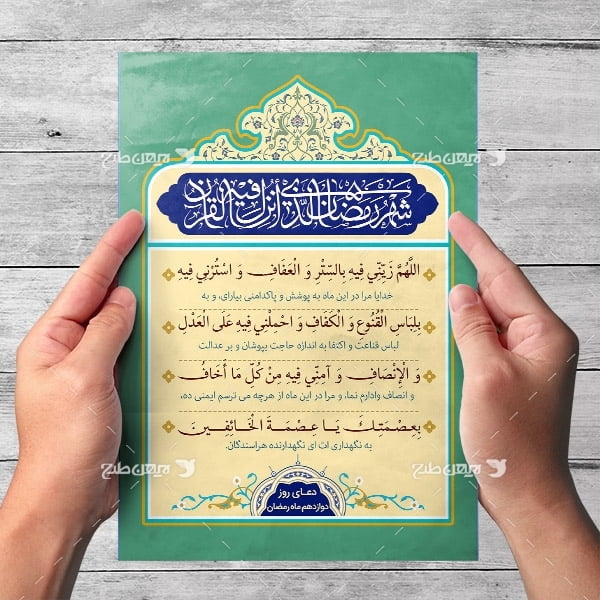 شهر رمضان الذی أنزل فیه القرآن
اللَّهُمَّ زَيِّنِّي فِيهِ بِالسِّتْرِ وَ الْعَفَافِ وَ اسْتُرْنِي فِيهِ
خدایا مرا در این ماه به پوشش و پاکدامنی بیارای، و به
بِلِبَاسِ الْقُنُوعِ وَ الْكَفَافِ وَ احْمِلْنِي فِيهِ عَلَى الْعَدْلِ
لباس قناعت و اکتفا به اندازه حاجت بپوشان و بر عدالت
وَ الْإِنْصَافِ وَ آمِنِّي فِيهِ مِنْ كُلِّ مَا أَخَافُ
و انصاف وادارم نما، و مرا در این ماه از هرچه می ترسم ایمنی ده،
بِعِصْمَتِكَ يَا عِصْمَةَ الْخَائِفِينَ
به نگهداری ات ای نگهدارنده هراسندگان.
دعای روز
دوازدهم ماه رمضان
میهن طرح
میهن طرح
میهن طرح
میهن طرح